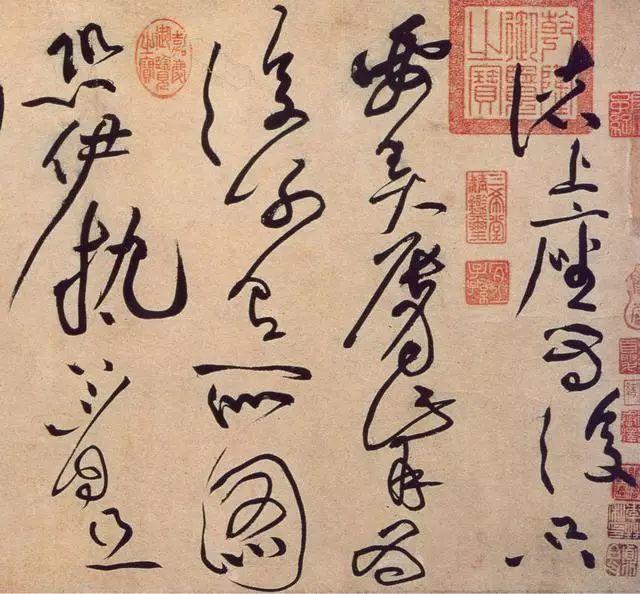 諸上座為復只
要弄脣觜為
復別有所圖
恐伊執著且
乾隆御覽之寶
嘉慶御覽之寶
三希堂精鑑璽
宜子孫